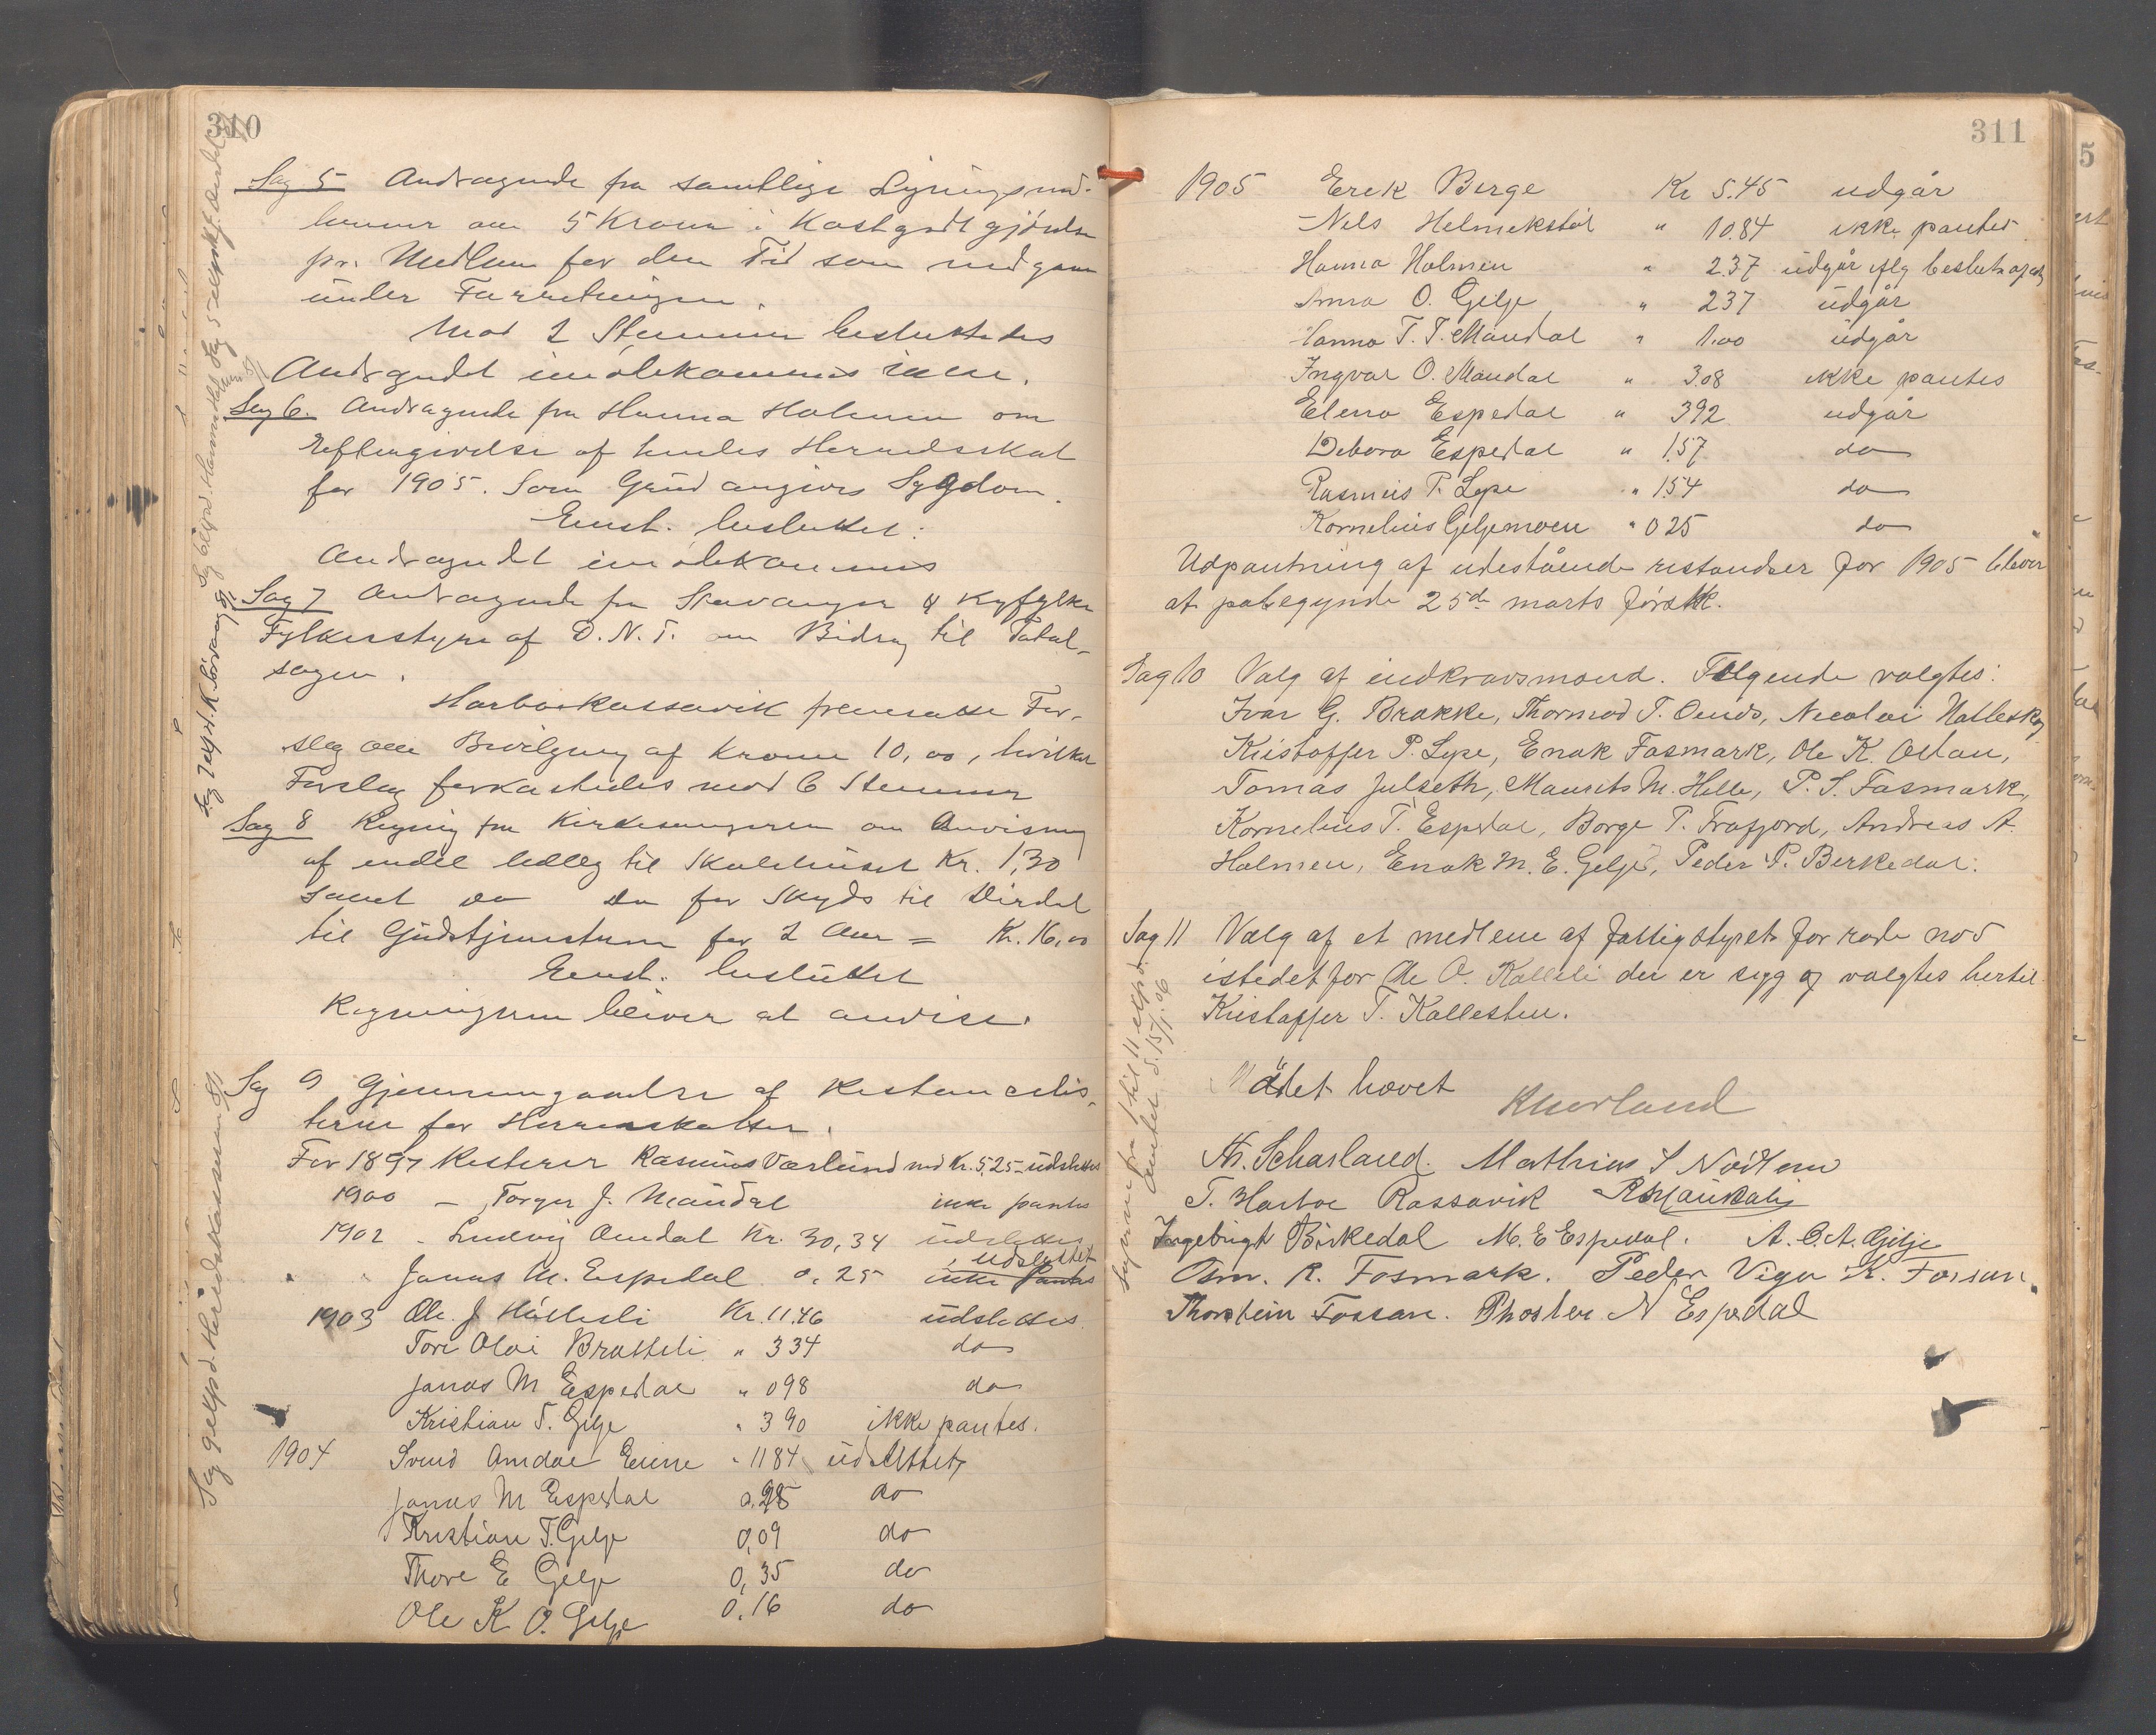 310
Sag 5 Andragende fra samtlige Ligningsmed-
lemmer om 5 Kroner i Kostgodtgjörelse
pr. Medlem for den Tid som medgaar
under Forretningen.
Mod 2 Stemmer besluttedes
Andragendet imödekommes
Sag 6. Andragende fra Hanna Holmen om
Eftergivelse af hendes Herredsskat
for 1905. Som Grund angives Sygdom.
Enst. besluttet:
Andragendet imödekommes
Sag 7 Andragende fra Stavanger & Ryfylke
Fylkesstyre af D.N.T. om Bidrag til Total-
sagen.
Harboe Rossavik fremsatte For-
slag om Bevilgning af Kroner 10,00, hvilket
Forslag forkastedes mod 6 Stemmer
Sag 8 Regning fra Kirkesangeren om Anvisning
af endel Udlæg til Skolehuset Kr. 1,30
samt do do for Skyds til Dirdal
til Gudstjenesterne for 2 Aar = Kr. 16,00
Enst. besluttet
Regningerne bliver at anvise.
Sag 9 Gjennemgaaelse af Restancelis-
terne for Herredsskatten.
For 1897 Resterer Rasmus Værland med Kr. 5,25 - udslettes
1900 - Torger J. Maudal ikke pantes
1902 - Ludvig Amdal Kr. 30,34 udslettes
" " Jonas M. Espedal 0,25 ikke pantes udslettet
1903 Ole J. Hatleli Kr. 11.46 udslettes.
Tore Olai Bratteli " 334 do
Jonas M Espedal " 098 do
Kristian T. Gilje " 390 ikke pantes.
1904 Svend Amdal Eune " 1184 udslettet
Jonas M Espedal 0,25 do
Kristian T. Gilje 0,09 do
Thore E Gilje 0,35 do
Ole K O. Gilje 0.16 do
Sag 7 exp. K. Lörvaag
Sag 9 exp. Herredskassereren
311
1905 Erek Berge Kr 5.45 udgår
Nels Helmekstöl " 10.84 ikke pantes
Hanna Holmen " 2.37 udgår iflg beslut
Anna O. Gilje " 237 udgår
Hanna T. T. Maudal " 1.00 udgår
Ingvar O. Maudal " 3.08 ikke pantes
Elena Espedal " 392 udgår
Debora Espedal " 1.57 do
Rasmus P. Lyse " 154 do
Kornelius Giljemoen " 025 do
Udpantning af udestående restandser for 1905 bliver
at påbegynde 25de marts förstk.
Sag 10 Valg af indkravsmænd. Fölgende valgtes:
Ivar G. Brekke, Thormod T. Oends, Necolai Hatleskog
Kristoffer P. Lyse, Enok Fosmark, Ole K. Oltan,
Tomas Julseth, Maurits M. Helle, P. S. Fosmark,
Kornelius T. Espedal, Borge T. Frafjord, Andreas A.
Holmen, Enok M. E. Gilje, Peder P. Berkedal.
Sag 11 Valg af et medlem af fattigstyret for rode no 5
istedetfor Ole O. Kalleli der er syg og valgtes hertil
Kristoffer T. Kallesten.
Mödet hævet
Th. Scharland. Mathias S Nödland
T. Harboe Rossavik R. Haukalid
Ingebrigt Birkedal M. E Espedal. A. O. A. Gilje
Osm. R. Fosmark. Peder Vigu K. Forsan.
Thorstein Fossan. Thosten N Espedal